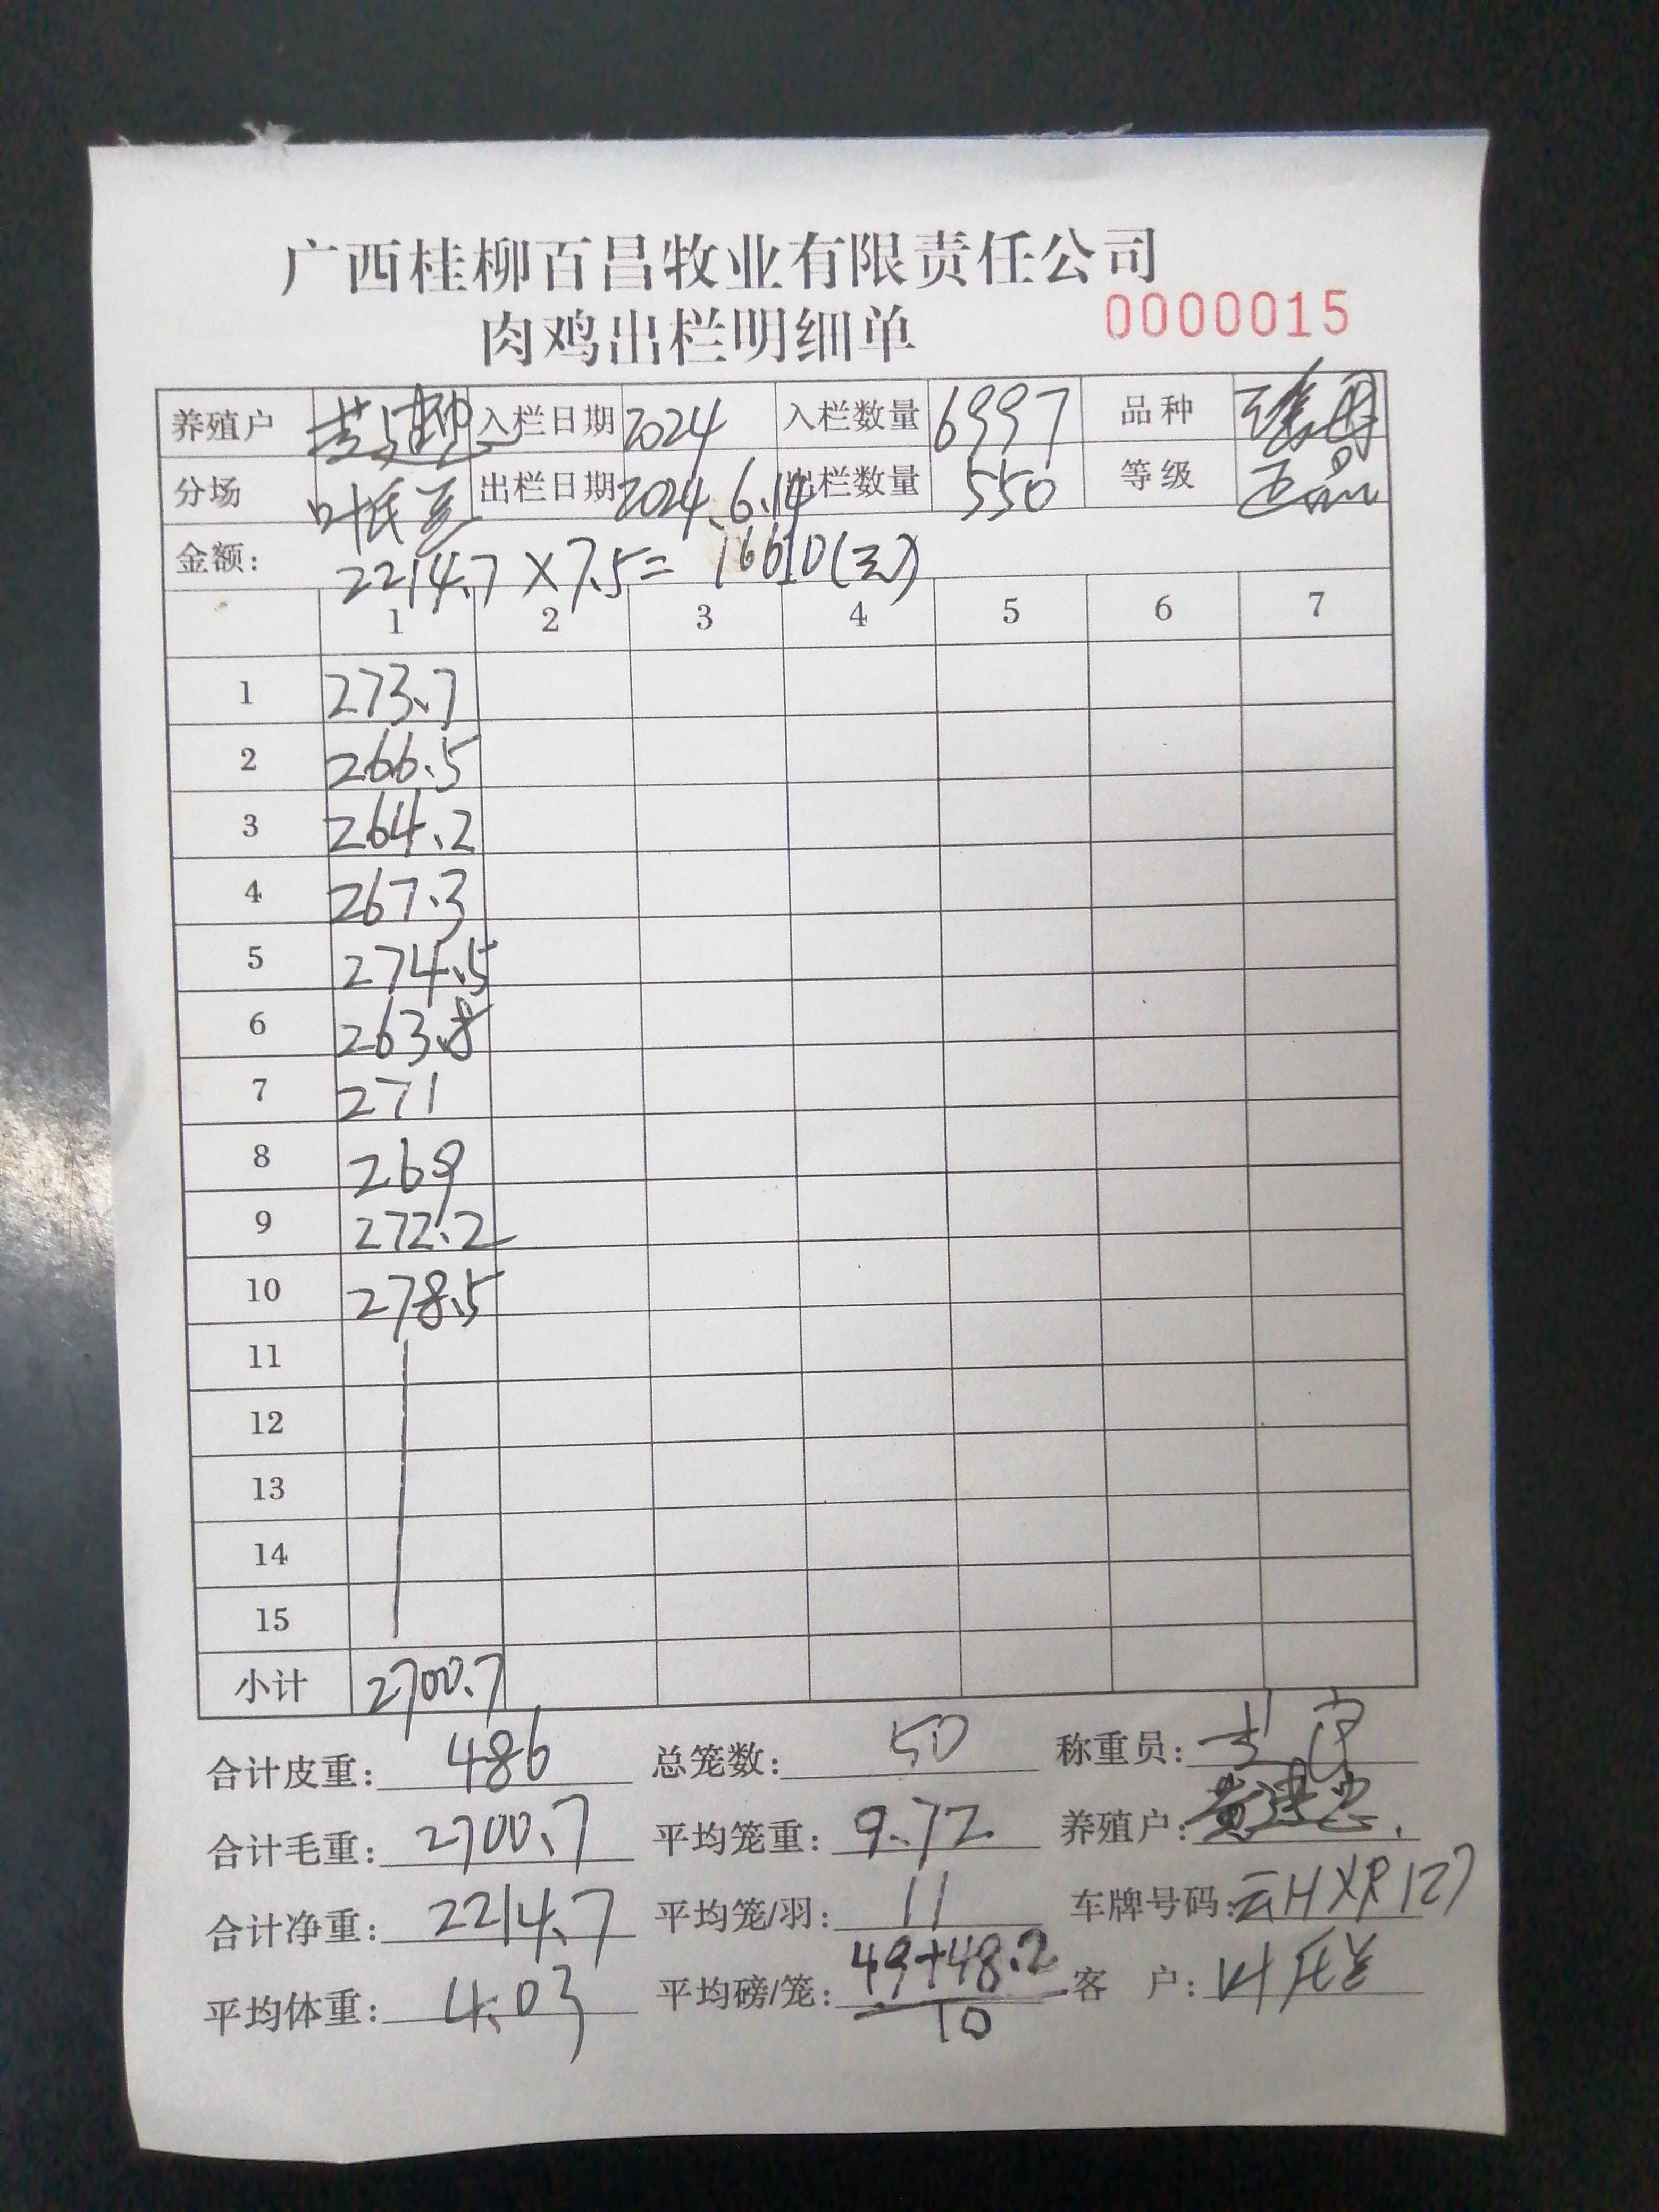 广西桂柳百昌牧业有限责任公司
肉鸡出栏明细单 0000015
养殖户 入栏日期 2024 入栏数量 6997 品种
分场 出栏日期 2024.6.14 出栏数量 550 等级 正品
金额: 2214.7×7.5= 16610(元)
1 2 3 4 5 6 7
1 273.7
2 266.5
3 264.2
4 267.3
5 274.5
6 263.8
7 271
8 269
9 272.2
10 278.5
11
12
13
14
15
小计 2700.7
合计皮重: 486 总笼数: 50 称重员:
合计毛重: 2700.7 平均笼重: 9.72 养殖户:
合计净重: 2214.7 平均笼/羽: 11 车牌号码: 云HXR127
平均体重: 4.03 平均磅/笼: 49+48.2 客 户:
10